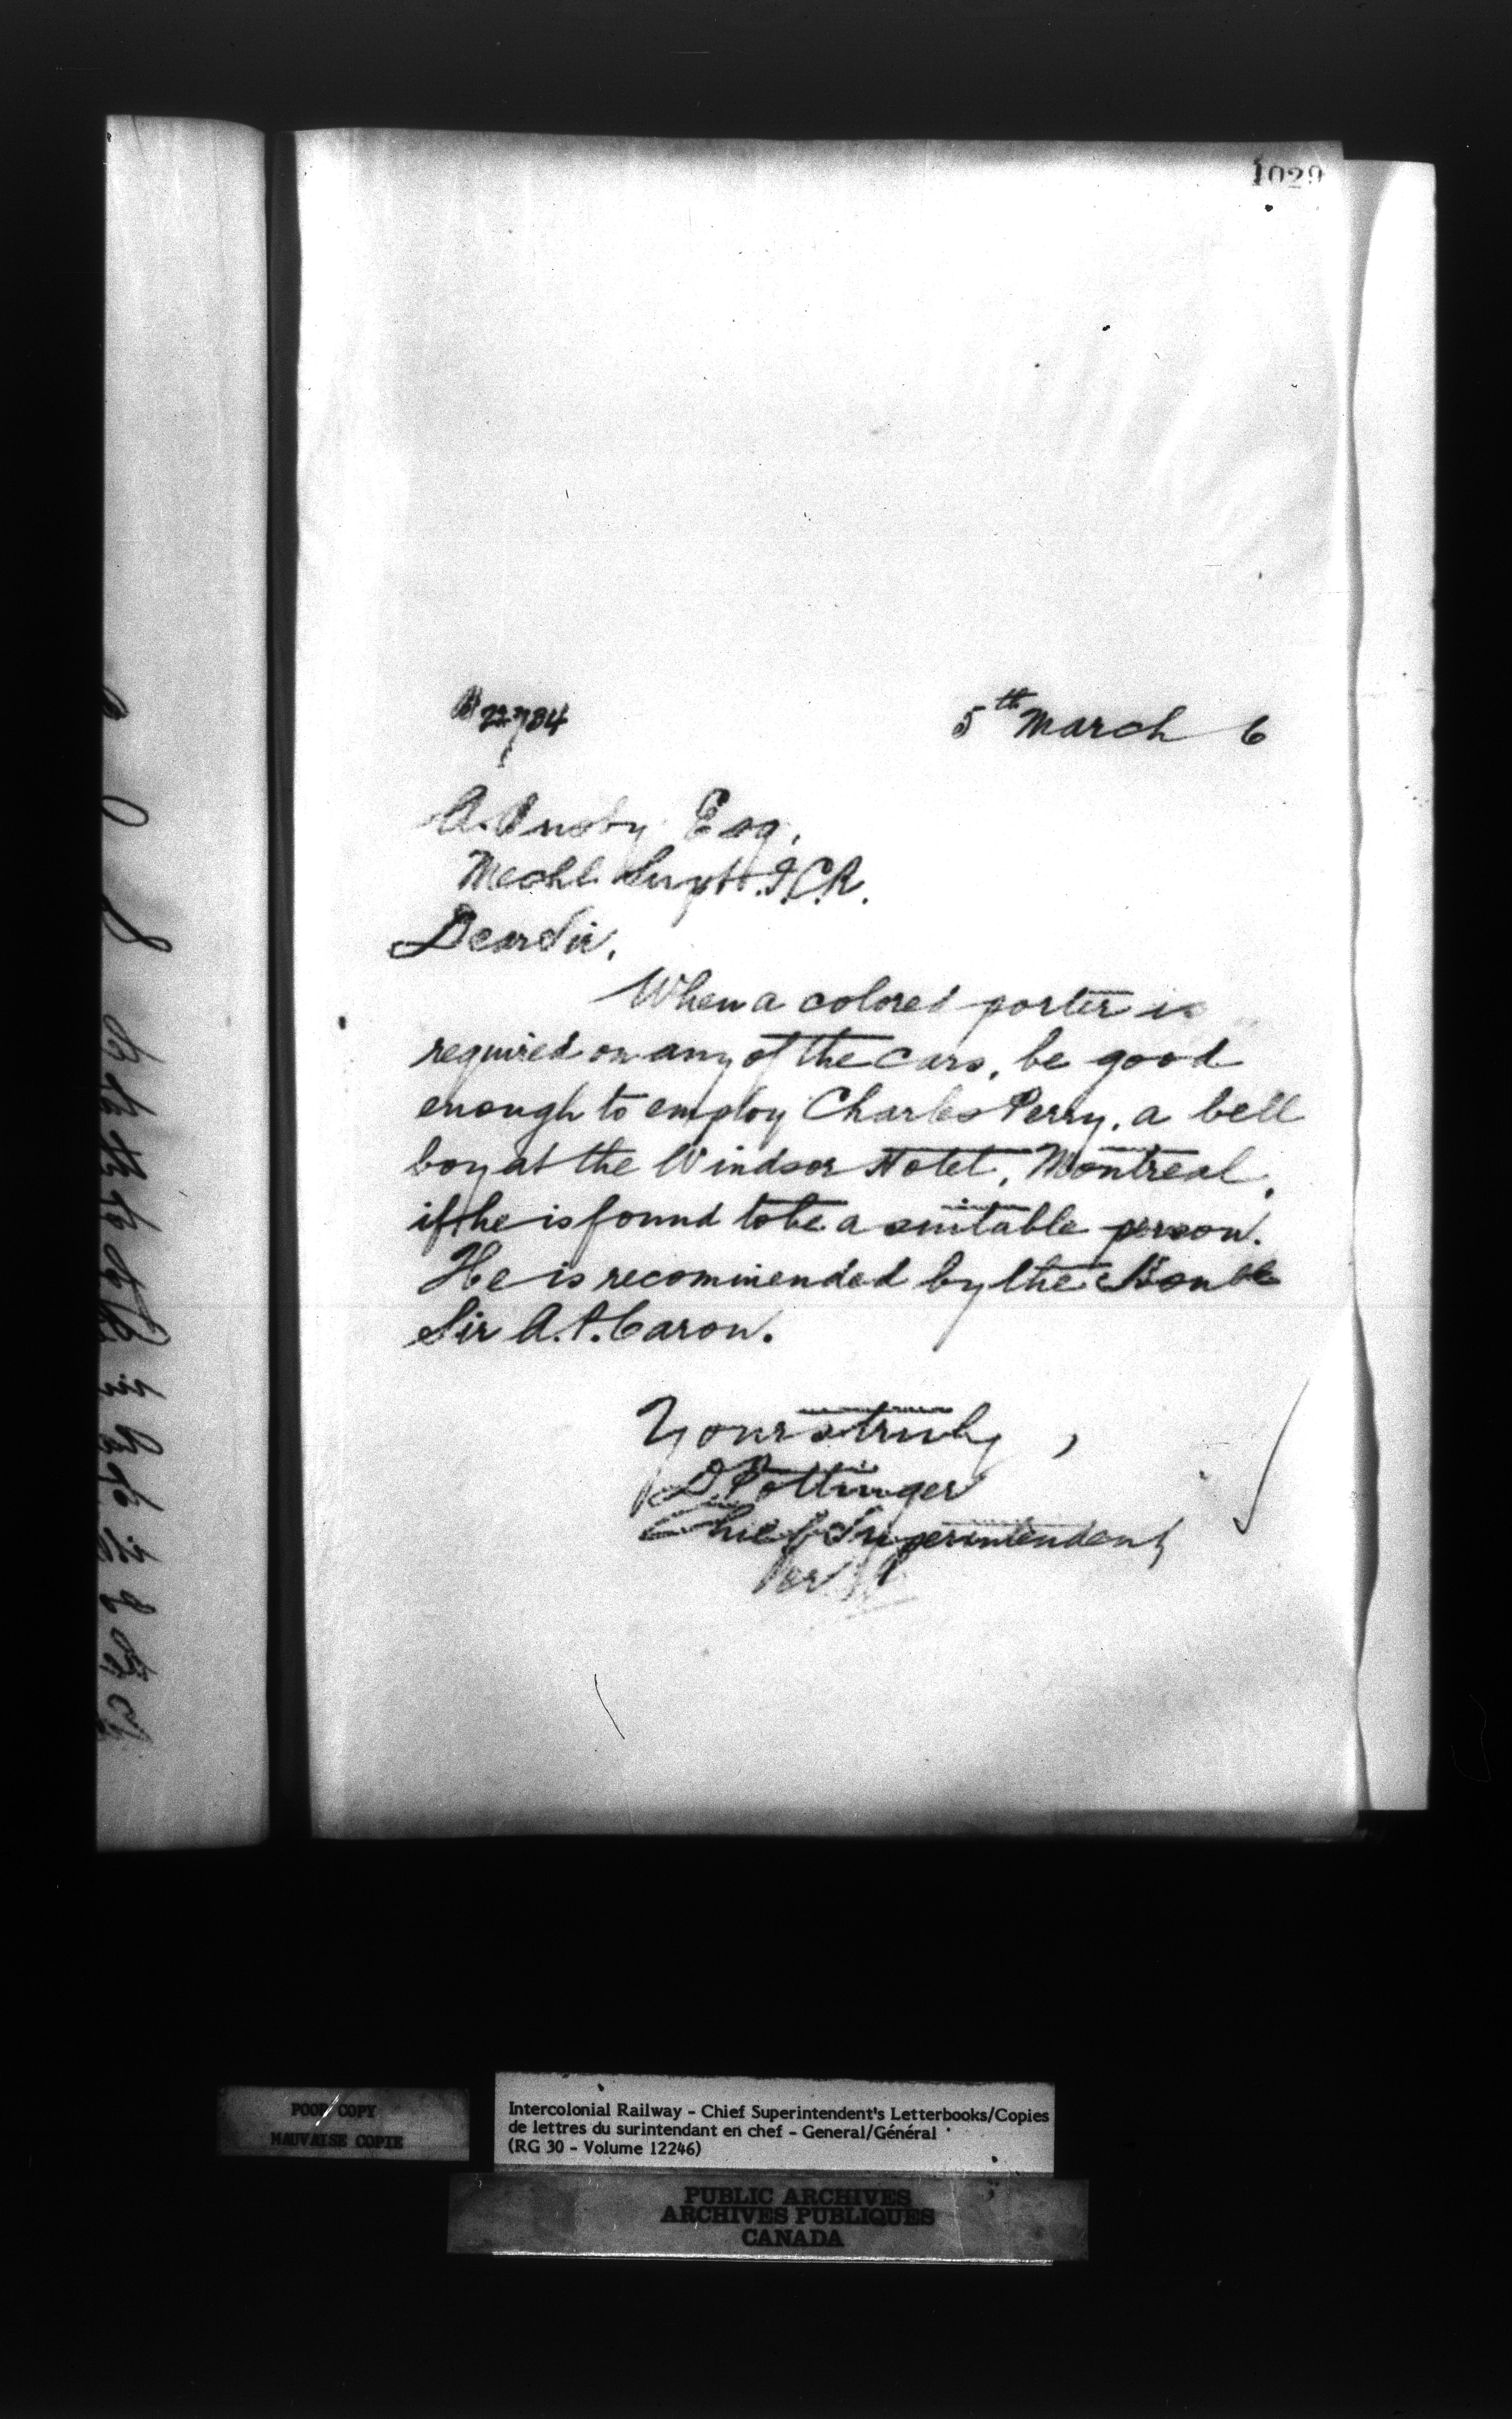 1029
5th March 6
A. Busby Esq,
Mechl. Supt. I.C.R.
Dear Sir,
When a colored porter is
required on any of the cars, be good
enough to employ Charles Perry, a bell
boy at the Windsor Hotel, Montreal,
if he is found to be a suitable person.
He is recommended by the Honble
Sir A. P. Caron.
Yours truly,
D Pottinger
Chief Superintendent
Per
POOR COPY
MAUVAISE COPIE
Intercolonial Railway - Chief Superintendent's Letterbooks/Copies
de lettres du surintendant en chef - General/Général
(RG 30 - Volume 12246)
PUBLIC ARCHIVES
ARCHIVES PUBLIQUES
CANADA